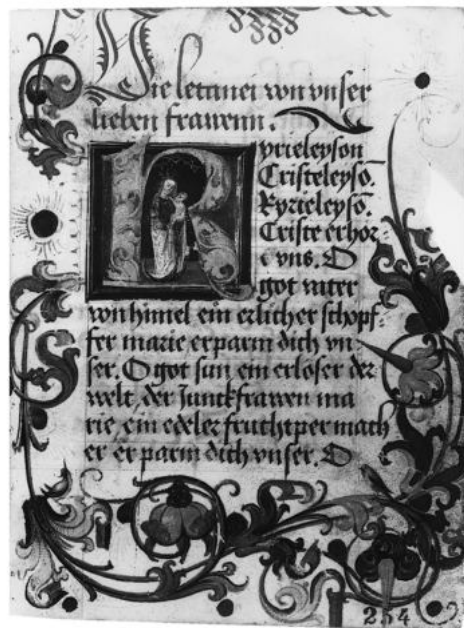 Die letanei von vnser
lieben frawenn.
Kyrieleyson
Cristeleysō.
Kyrieleysō.
Criste erhor-
e vns. O
got vater
von himel ein erlicher schopf-
fer marie erparm dich vn-
ser. O got sun ein erloser der
welt, der Junckfrawen ma
rie ein edeler frucht per mach
er erparm dich vnser. O
254